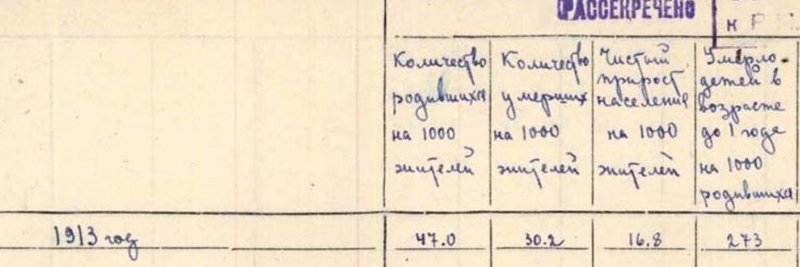 РАССЕКРЕЧЕНО
к Р
Количество
родившихся
на 1000
жителей
Количество
умерших
на 1000
жителей
Чистый
прирост
населения
на 1000
жителей
Умерло
детей в
возрасте
до 1 года
на 1000
родившихся
1913 год 47.0 30.2 16.8 273